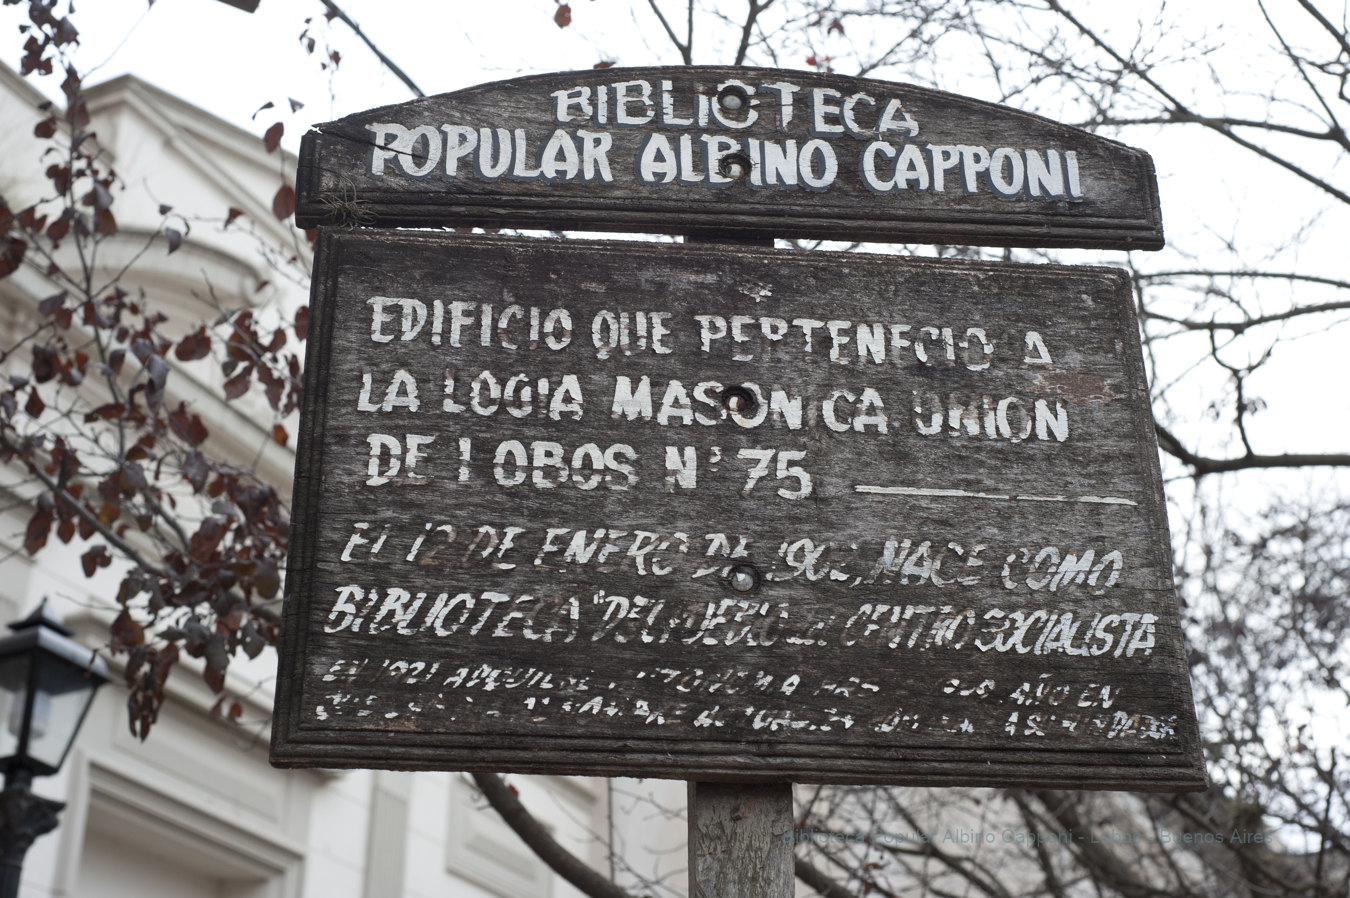 BIBLIOTECA
POPULAR ALBINO CAPPONI
EDIFICIO QUE PERTENECIO A
LA LOGIA MASONICA UNION
DE LOBOS Nº 75
EL 12 DE ENERO DE 1902, NACE COMO
BIBLIOTECA "DEL PUEBLO CENTRO SOCIALISTA
EN 1921 ADQUIERE AUTONOMIA AÑO EN
QUE NOMBRE ACTUAL EN A SU FUNDADOR
Biblioteca Popular Albino Capponi - Lobos - Buenos Aires